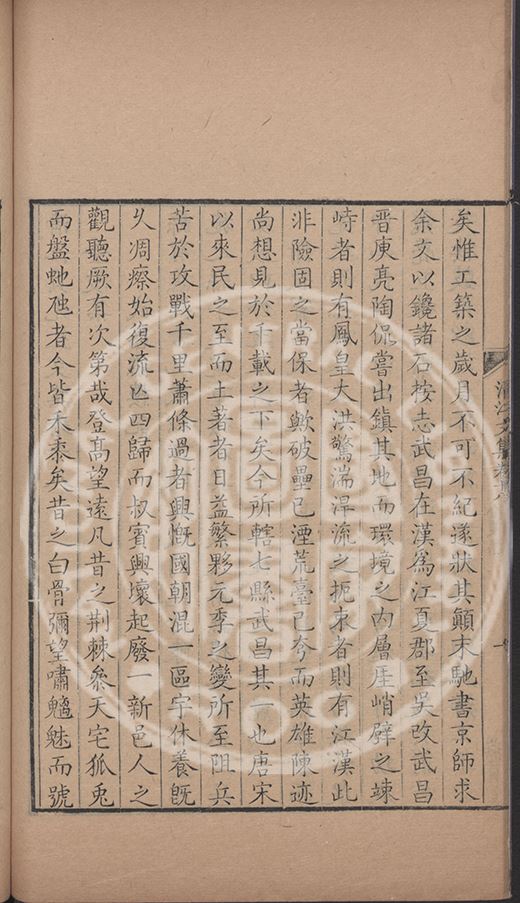 矣惟工築之歲月不可不紀遂狀其顛末馳書京師求
余文以鑱諸石按志武昌在漢爲江夏郡至吳改武昌
晉庾亮陶侃嘗出鎮其地而環境之內層厓峭壁之竦
峙者則有鳳皇大洪驚湍湜流之扼束者則有江漢此
非險固之當保者歟破壘已湮荒臺已夸而英雄陳迹
尚想見於千載之下矣今所轄七縣武昌其一也唐宋
以來民之至而土著者日益繁夥元季之變所至阻兵
苦於攻戰千里蕭條過者興慨國朝混一區宇休養旣
久凋瘵始復流亡四歸而叔賓興壞起廢一新邑人之
觀聽厥有次第哉登高望遠凡昔之荆棘叅天宅狐兎
而盤虵虺者今皆禾黍矣昔之白骨彌望嘯魑魅而號